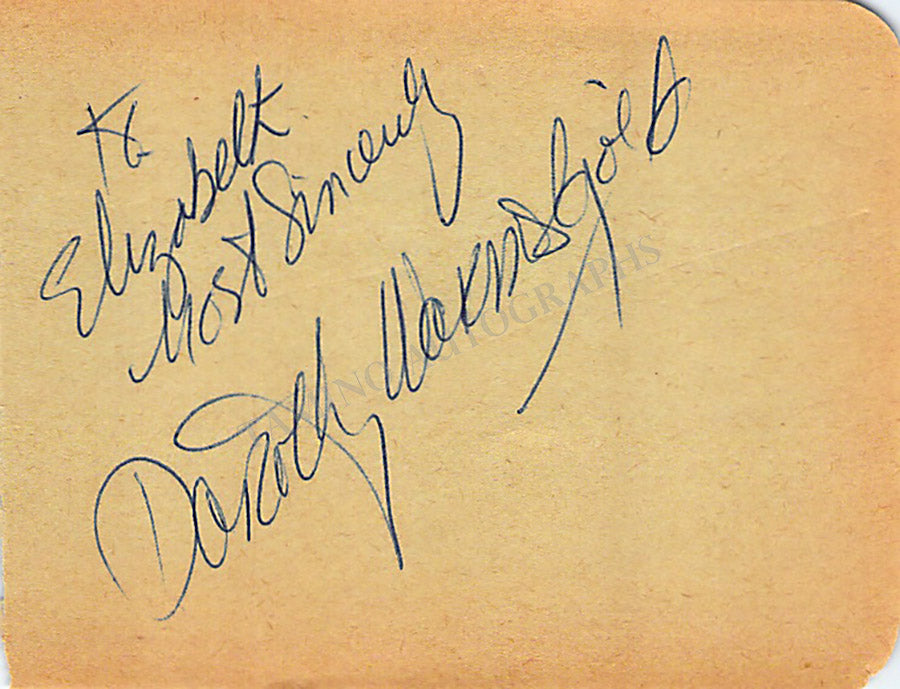 To
Elizabeth
Most Sincerely
Dorothy Warenskjold
TAMINO AUTOGRAPHS